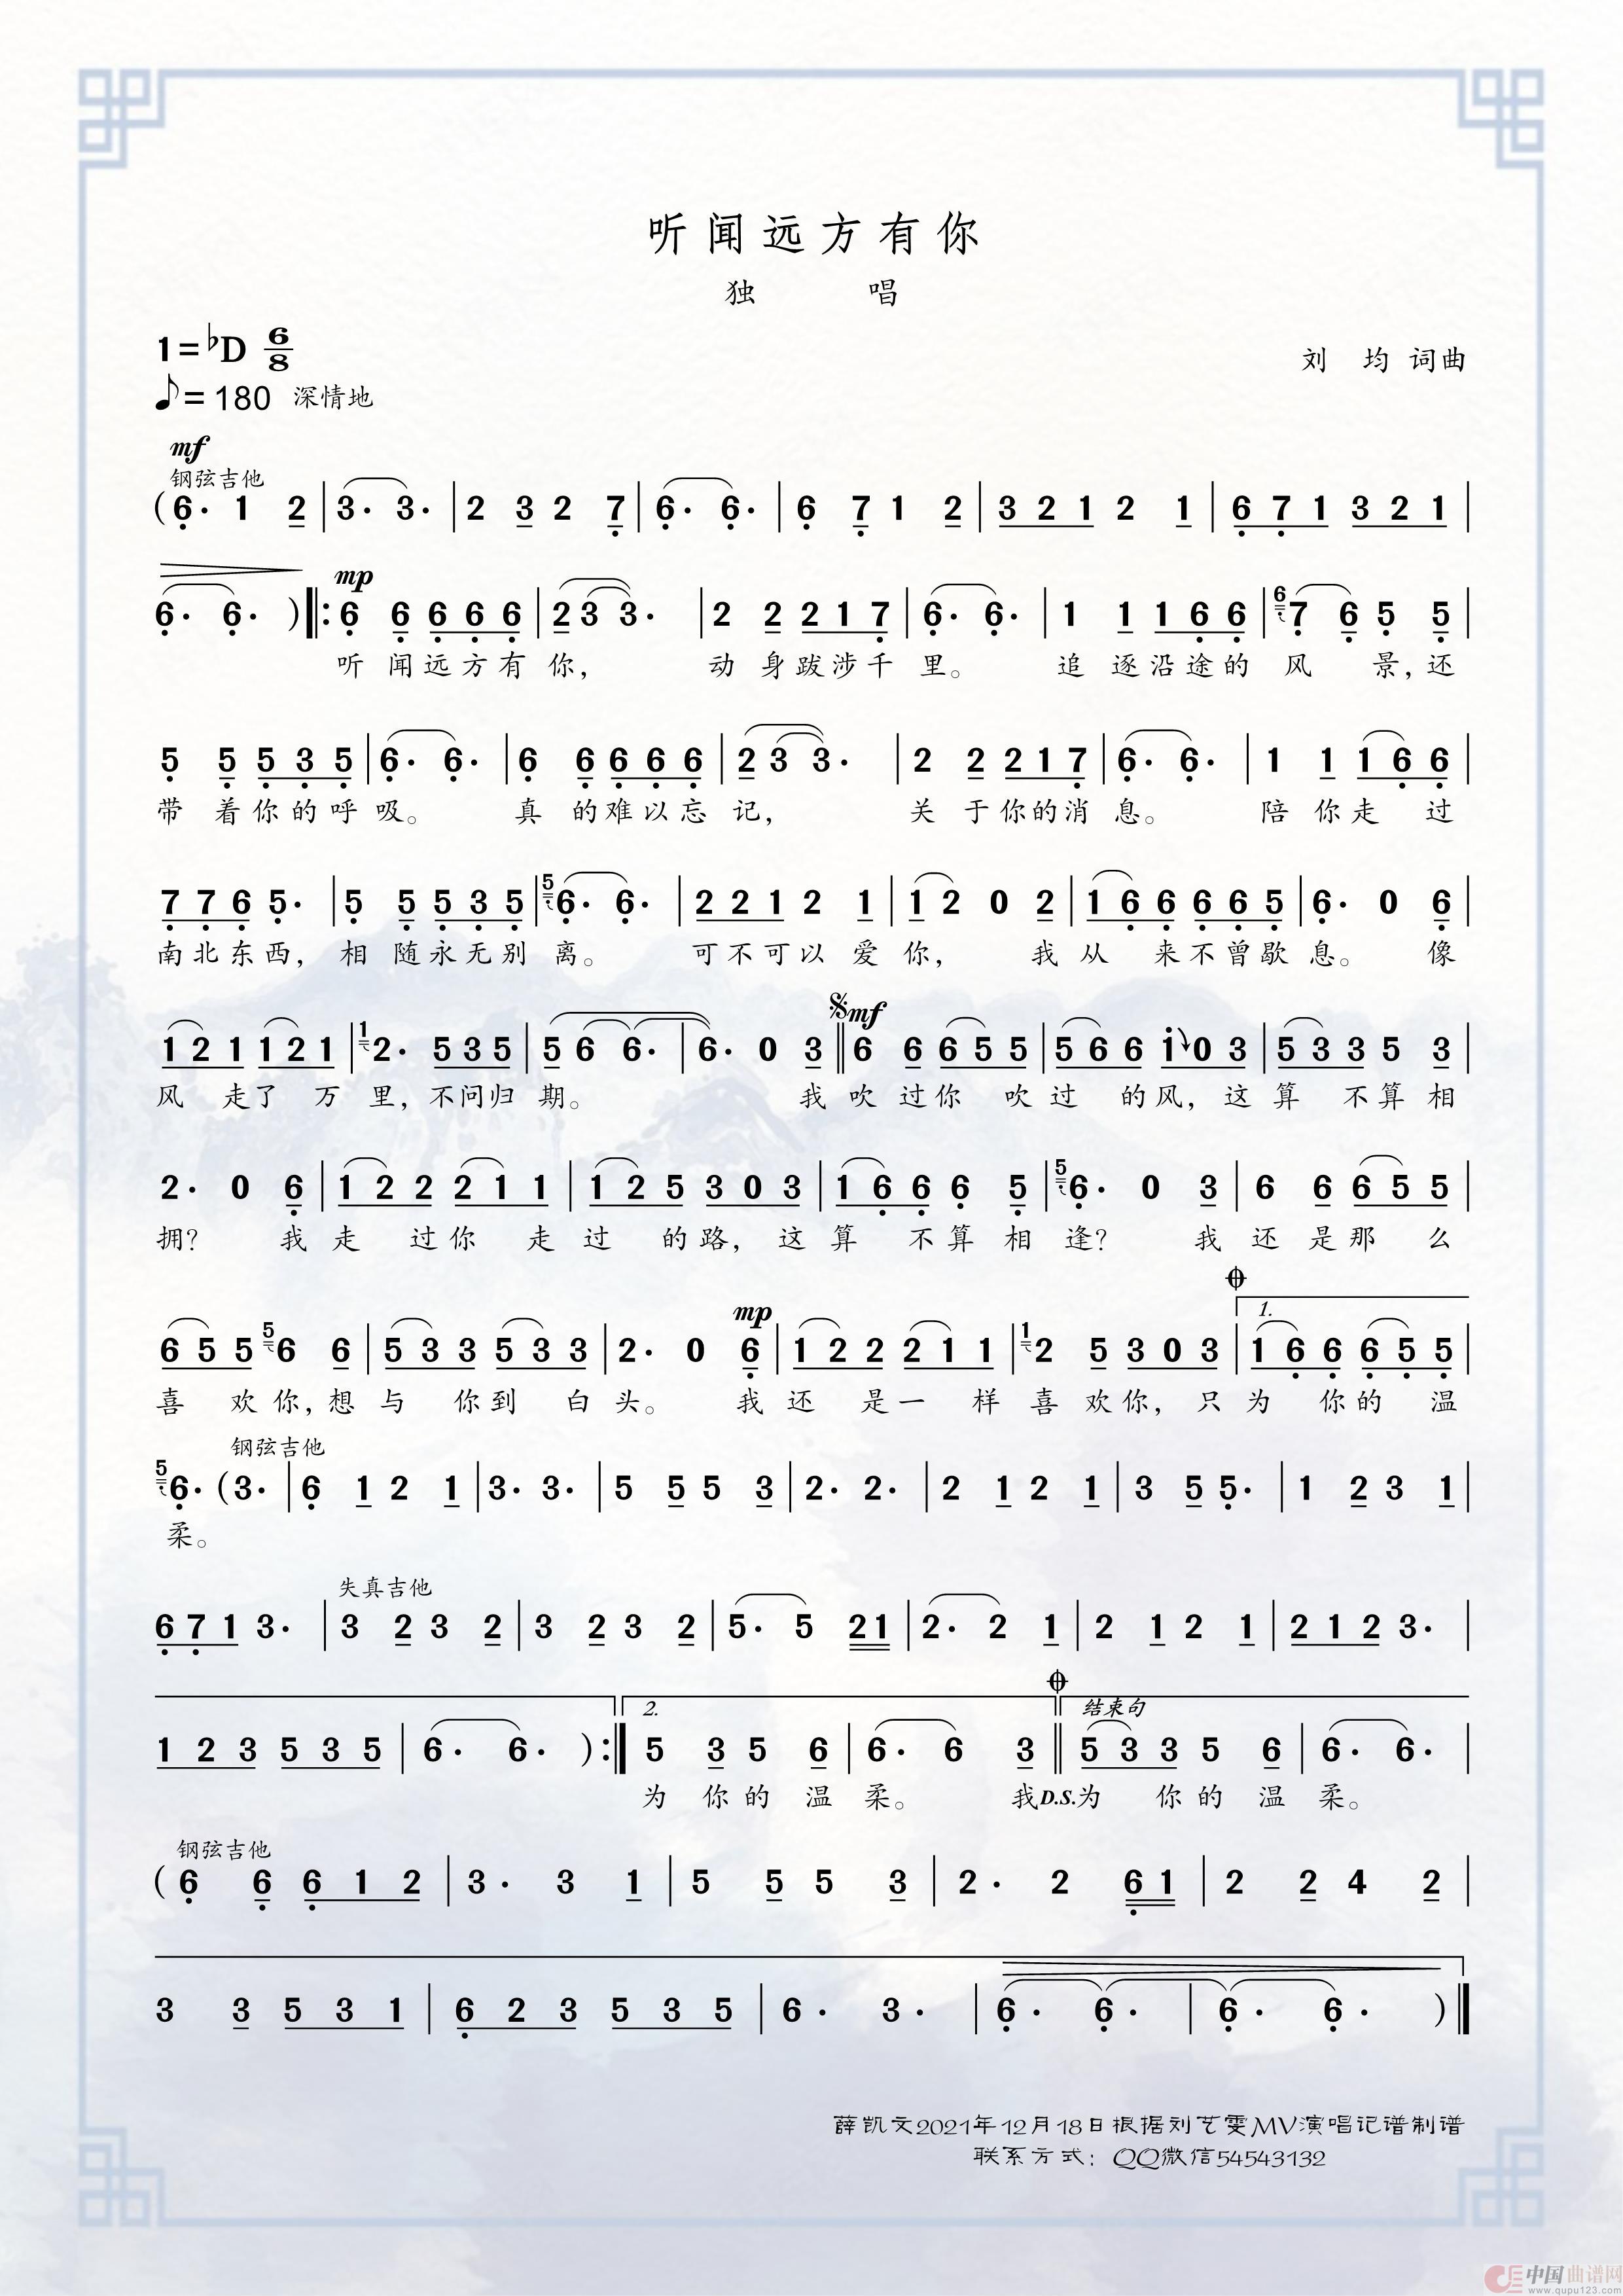 听闻远方有你
独 唱
1=♭D 6/8
刘 均 词曲
♪=180 深情地
mf
钢弦吉他
(6̣· 1 2 | 3· 3· | 2 3 2 7̣ | 6̣· 6̣· | 6̣ 7̣ 1 2 | 3 2 1 2 1 | 6̣ 7̣ 1 3 2 1 |
mp
6̣· 6̣· ) ‖: 6̣ 6̣ 6̣ 6̣ 6̣ | 2 3 3· | 2 2 2 1 7̣ | 6̣· 6̣· | 1 1 1 6̣ 6̣ | 6 7̣ 6̣ 5̣ 5̣ |
听 闻远方有 你, 动 身跋涉千 里。 追 逐沿途的 风 景,还
5̣ 5̣ 5̣ 3̣ 5̣ | 6̣· 6̣· | 6̣ 6̣ 6̣ 6̣ 6̣ | 2 3 3· | 2 2 2 1 7̣ | 6̣· 6̣· | 1 1 1 6̣ 6̣ |
带 着你的呼 吸。 真 的难以忘 记, 关 于你的消 息。 陪 你走 过
7̣ 7̣ 6̣ 5̣· | 5̣ 5̣ 5̣ 3̣ 5̣ | 5 6̣· 6̣· | 2 2 1 2 1 | 1 2 0 2 | 1 6̣ 6̣ 6̣ 6̣ 5̣ | 6̣· 0 6̣ |
南北东西, 相 随永无别 离。 可不可以 爱 你, 我 从 来不曾歇 息。 像
1 2 1 1 2 1 | 1 2· 5 3 5 | 5 6 6· | 6· 0 3 ‖ 𝄋 mf 6 6 6 5 5 | 5 6 6 i 0 3 | 5 3 3 5 3 |
风 走了 万 里,不问归 期。 我 吹 过你 吹 过 的风, 这 算 不算 相
2· 0 6̣ | 1 2 2 2 1 1 | 1 2 5 3 0 3 | 1 6̣ 6̣ 6̣ 5̣ | 5 6̣· 0 3 | 6 6 6 5 5 |
拥? 我 走 过你 走 过 的路, 这 算 不算 相 逢? 我 还 是那 么
6 5 5 5 6 6 | 5 3 3 5 3 3 | 2· 0 mp 6̣ | 1 2 2 2 1 1 | 1 2 5 3 0 3 | 𝄌 1. 1 6̣ 6̣ 6̣ 5̣ 5̣ |
喜 欢你,想 与 你到 白 头。 我 还 是一 样 喜 欢你, 只 为 你的 温
钢弦吉他
5 6̣· (3· | 6̣ 1 2 1 | 3· 3· | 5 5 5 3 | 2· 2· | 2 1 2 1 | 3 5 5̣· | 1 2 3 1 |
柔。
失真吉他
6̣ 7̣ 1 3· | 3 2 3 2 | 3 2 3 2 | 5· 5 2 1 | 2· 2 1 | 2 1 2 1 | 2 1 2 3· |
2. 𝄌 结束句
1 2 3 5 3 5 | 6· 6· ) :‖ 5 3 5 6 | 6· 6 3 ‖ 5 3 3 5 6 | 6· 6· |
为 你的 温 柔。 我D.S.为 你的 温 柔。
钢弦吉他
(6̣ 6̣ 6̣ 1 2 | 3· 3 1 | 5 5 5 3 | 2· 2 6̣ 1 | 2 2 4 2 |
3 3 5 3 1 | 6̣ 2 3 5 3 5 | 6· 3· | 6̣· 6̣· | 6̣· 6̣· ) ‖
薛凯文2021年12月18日根据刘艺雯MV演唱记谱制谱
联系方式：QQ微信54543132
中国曲谱网
www.qupu123.com